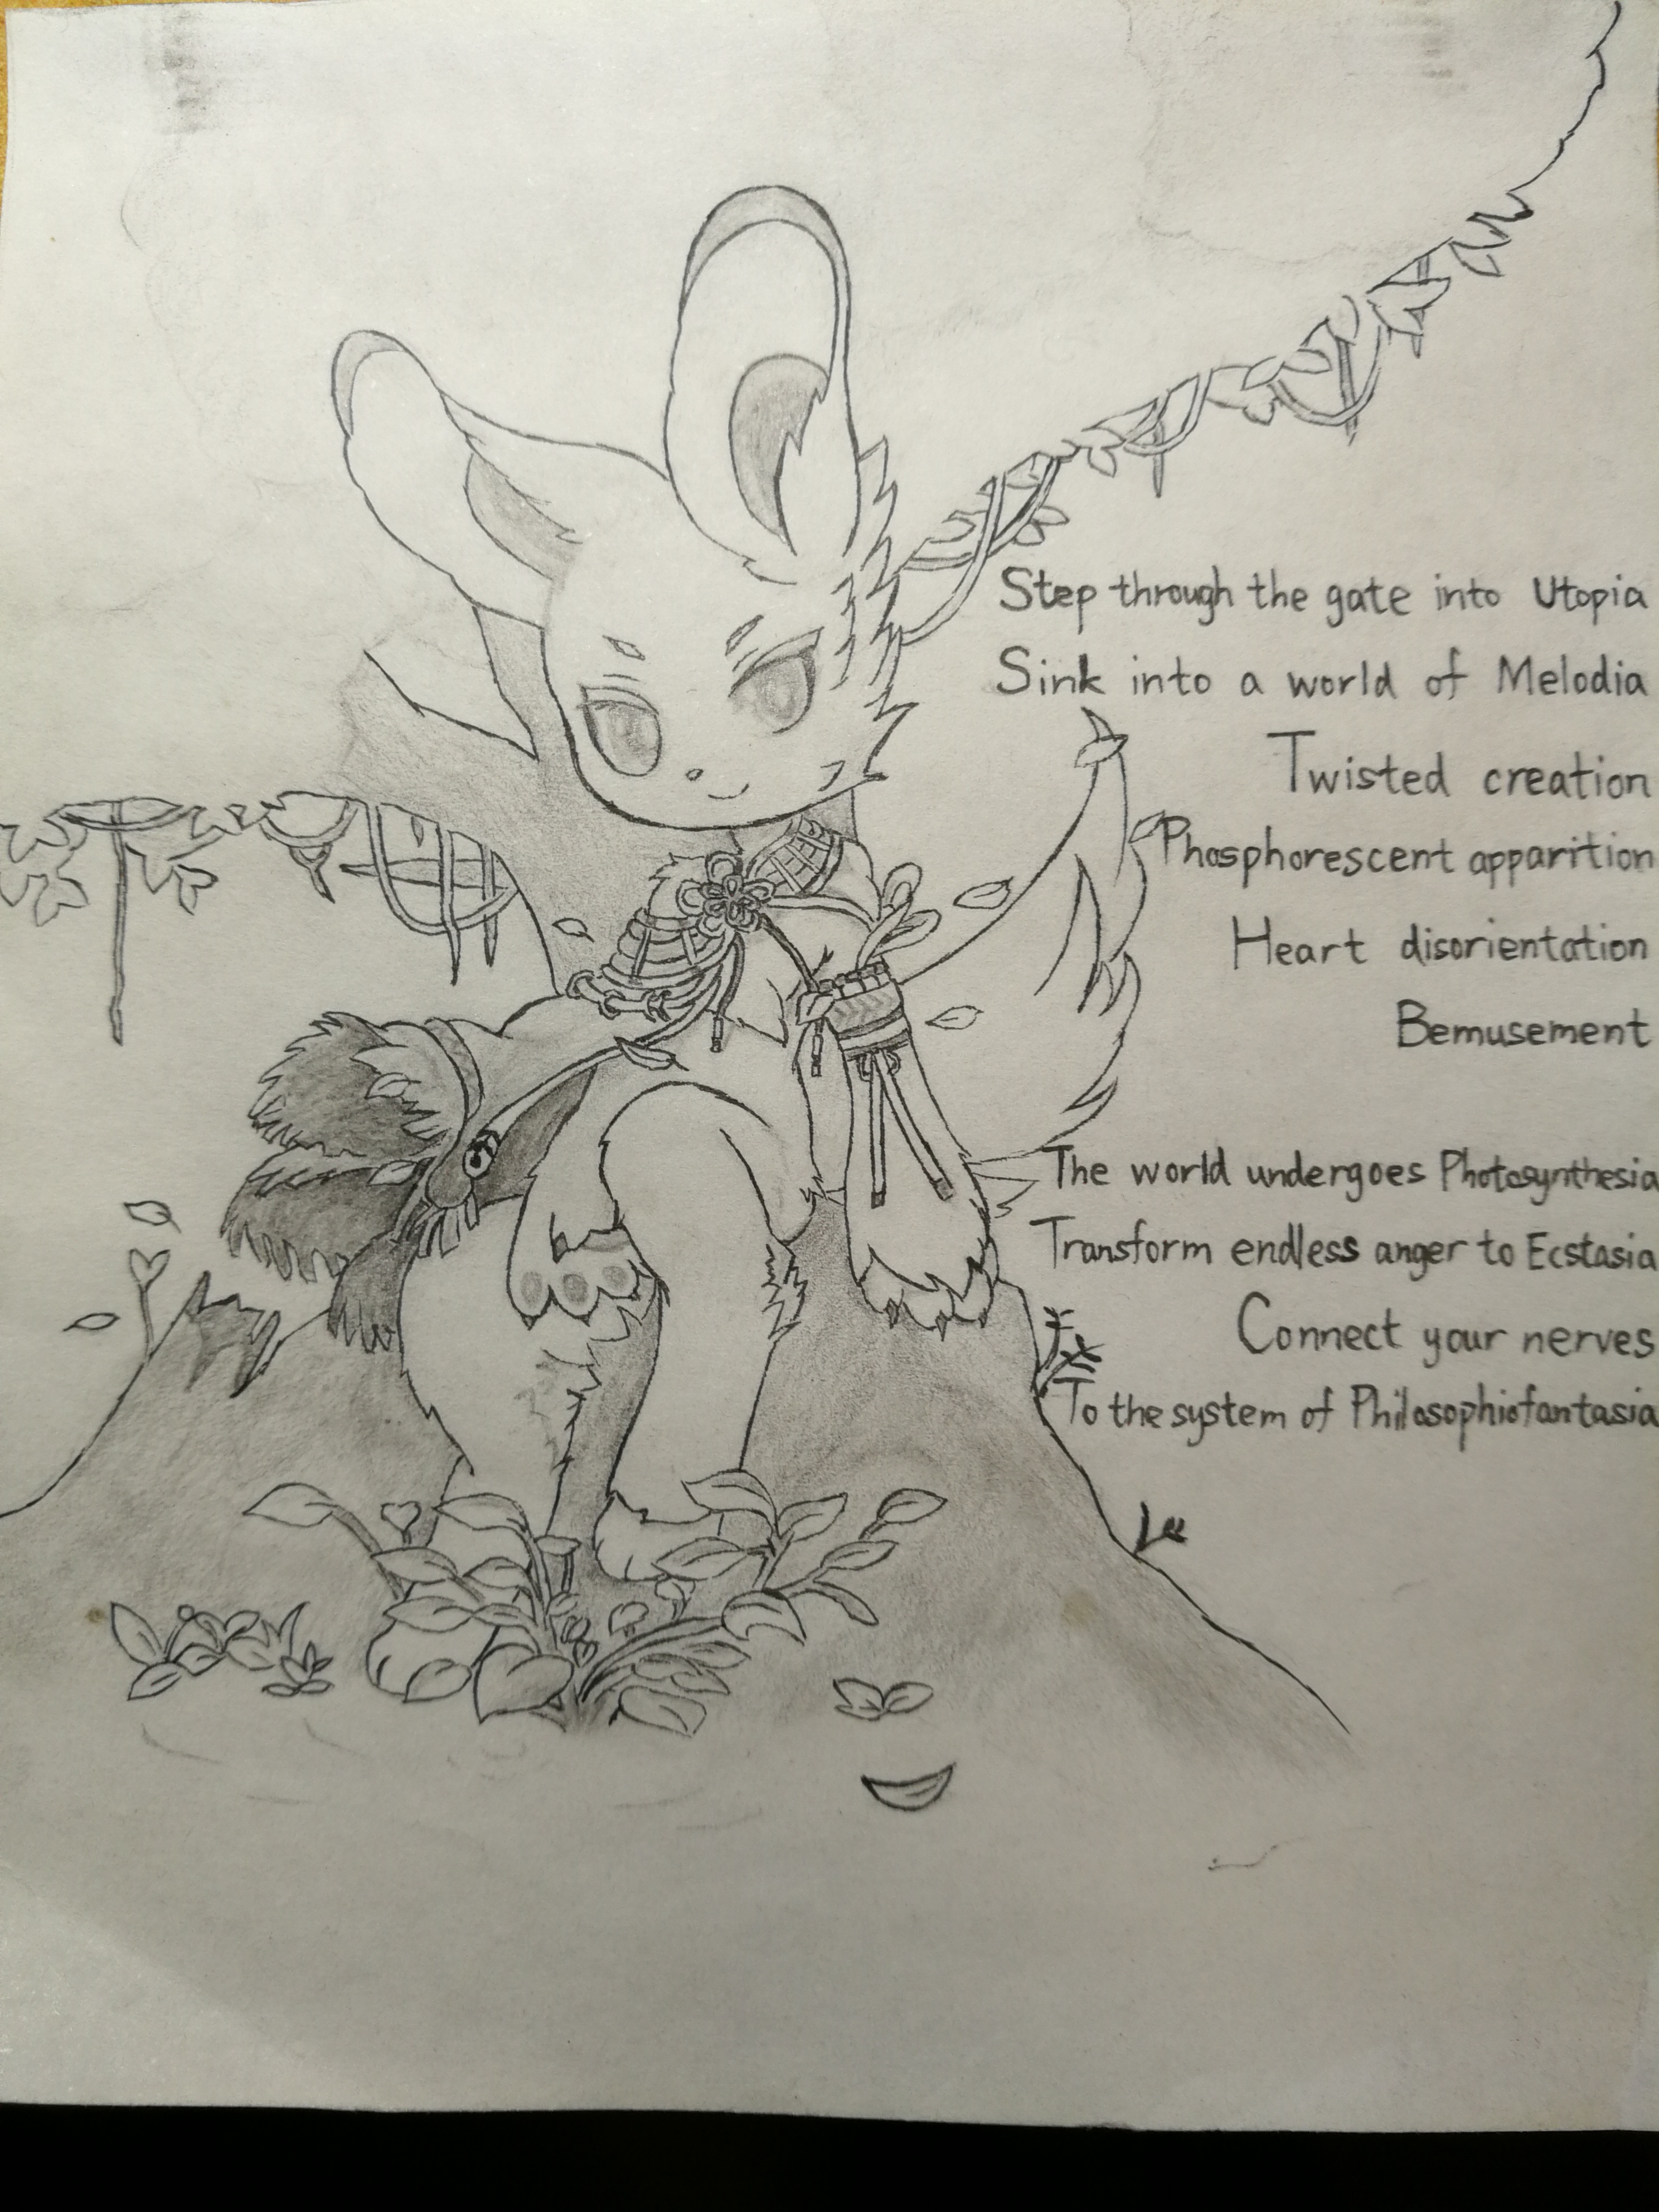 Step through the gate into Utopia
Sink into a world of Melodia
Twisted creation
Phosphorescent apparition
Heart disorientation
Bemusement
The world undergoes Photosynthesia
Transform endless anger to Ecstasia
Connect your nerves
To the system of Philosophiofantasia